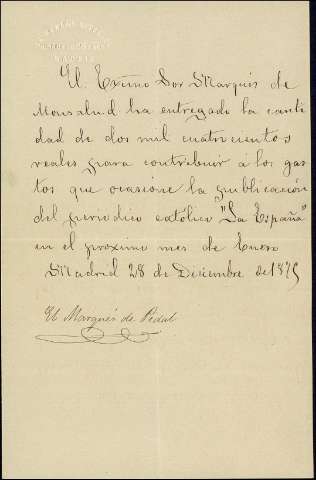 El Exmo Sor Marqués de
Monsalud ha entregado la canti
dad de dos mil cuatrocientos
reales para contribuir á los gas
tos que ocasione la publicación
del periodico catolico "La España"
en el proximo mes de Enero
Madrid 28 de Diciembre de 1875
El Marqués de Pidal